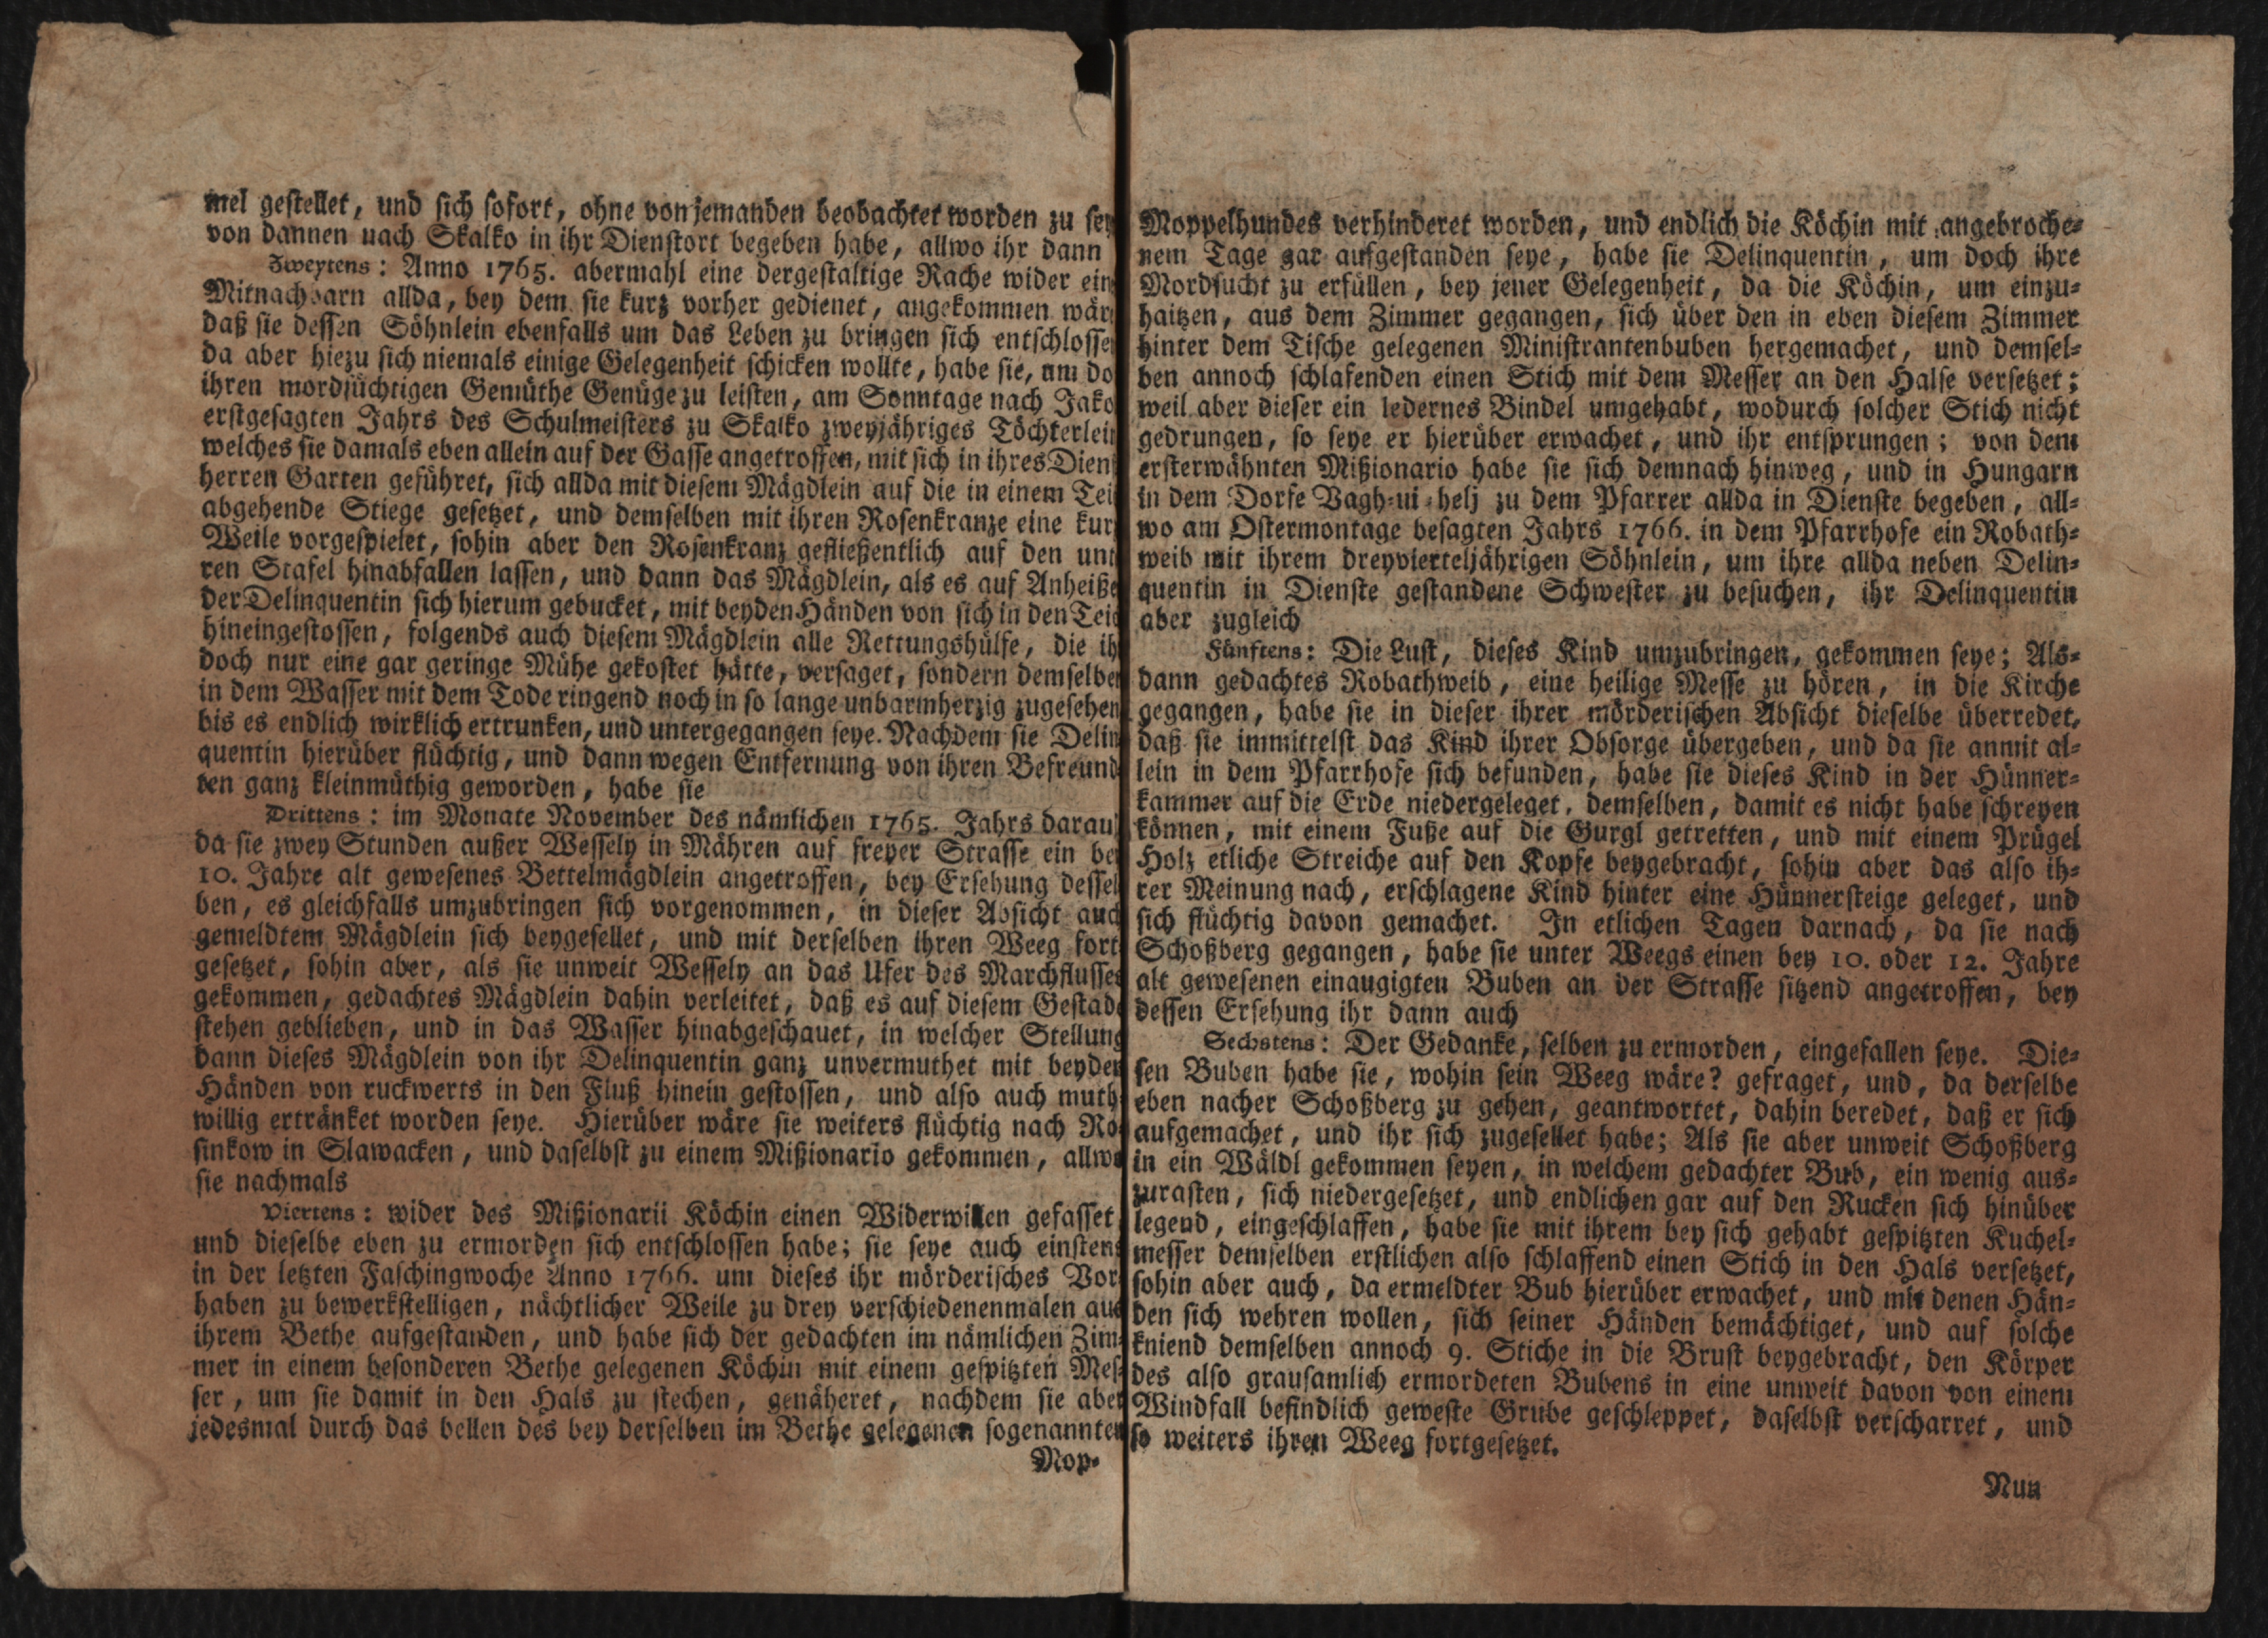 mel gestellet, und sich sofort, ohne von jemanden beobachtet worden zu sey
von dannen nach Skalko in ihr Dienstort begeben habe, allwo ihr dann
Zweytens: Anno 1765. abermahl eine dergestaltige Rache wider ein
Mitnachbarn allda, bey dem sie kurz vorher gedienet, angekommen wär
daß sie dessen Söhnlein ebenfalls um das Leben zu bringen sich entschlosse
da aber hiezu sich niemals einige Gelegenheit schicken wollte, habe sie, um do
ihren mordsüchtigen Gemüthe Genüge zu leisten, am Sonntage nach Jako
erstgesagten Jahrs des Schulmeisters zu Skalko zweyjähriges Töchterlei
welches sie damals eben allein auf der Gasse angetroffen, mit sich in ihres Dien
herren Garten geführet, sich allda mit diesem Mägdlein auf die in einem Tei
abgehende Stiege gesetzet, und demselben mit ihren Rosenkranze eine kur
Weile vorgespielet, sohin aber den Rosenkranz gefließentlich auf den unt
ren Stafel hinabfallen lassen, und dann das Mägdlein, als es auf Anheiße
der Delinquentin sich hierum gebucket, mit beyden Händen von sich in den Tei
hineingestossen, folgends auch diesem Mägdlein alle Rettungshülfe, die ih
doch nur eine gar geringe Mühe gekostet hätte, versaget, sondern demselbe
in dem Wasser mit dem Tode ringend noch in so lange unbarmherzig zugesehen
bis es endlich wirklich ertrunken, und untergegangen seye. Nachdem sie Delin
quentin hierüber flüchtig, und dann wegen Entfernung von ihren Befreund
ten ganz kleinmüthig geworden, habe sie
Drittens: im Monate November des nämlichen 1765. Jahrs darau
da sie zwey Stunden außer Wessely in Mähren auf freyer Strasse ein bey
10. Jahre alt gewesenes Bettelmägdlein angetroffen, bey Ersehung dessel
ben, es gleichfalls umzubringen sich vorgenommen, in dieser Absicht auch
gemeldtem Mägdlein sich beygesellet, und mit derselben ihren Weeg fort
gesetzet, sohin aber, als sie unweit Wessely an das Ufer des Marchflusses
gekommen, gedachtes Mägdlein dahin verleitet, daß es auf diesem Gestade
stehen geblieben, und in das Wasser hinabgeschauet, in welcher Stellung
dann dieses Mägdlein von ihr Delinquentin ganz unvermuthet mit beyden
Händen von ruckwerts in den Fluß hinein gestossen, und also auch muth
willig ertränket worden seye. Hierüber wäre sie weiters flüchtig nach Ro
sinkow in Slawacken, und daselbst zu einem Mißionario gekommen, allwo
sie nachmals
Viertens: wider des Mißionarii Köchin einen Widerwillen gefasset,
und dieselbe eben zu ermorden sich entschlossen habe; sie seye auch einstens
in der letzten Faschingwoche Anno 1766. um dieses ihr mörderisches Vor
haben zu bewerkstelligen, nächtlicher Weile zu drey verschiedenenmalen aus
ihrem Bethe aufgestanden, und habe sich der gedachten im nämlichen Zim
mer in einem besonderen Bethe gelegenen Köchin mit einem gespitzten Mes
ser, um sie damit in den Hals zu stechen, genäheret, nachdem sie aber
jedesmal durch das bellen des bey derselben im Bethe gelegenen sogenannten
Mop-
Moppelhundes verhinderet worden, und endlich die Köchin mit angebroche-
nem Tage gar aufgestanden seye, habe sie Delinquentin, um doch ihre
Mordsucht zu erfüllen, bey jener Gelegenheit, da die Köchin, um einzu-
haitzen, aus dem Zimmer gegangen, sich über den in eben diesem Zimmer
hinter dem Tische gelegenen Ministrantenbuben hergemachet, und demsel-
ben annoch schlafenden einen Stich mit dem Messer an den Halse versetzet;
weil aber dieser ein ledernes Bindel umgehabt, wodurch solcher Stich nicht
gedrungen, so seye er hierüber erwachet, und ihr entsprungen; von dem
ersterwähnten Mißionario habe sie sich demnach hinweg, und in Hungarn
in dem Dorfe Vagh-ui-helj zu dem Pfarrer allda in Dienste begeben, all-
wo am Ostermontage besagten Jahrs 1766. in dem Pfarrhofe ein Robath-
weib mit ihrem dreyvierteljährigen Söhnlein, um ihre allda neben Delin-
quentin in Dienste gestandene Schwester zu besuchen, ihr Delinquentin
aber zugleich
Fünftens: Die Lust, dieses Kind umzubringen, gekommen seye; Als-
dann gedachtes Robathweib, eine heilige Messe zu hören, in die Kirche
gegangen, habe sie in dieser ihrer mörderischen Absicht dieselbe überredet,
daß sie immittelst das Kind ihrer Obsorge übergeben, und da sie anmit al-
lein in dem Pfarrhofe sich befunden, habe sie dieses Kind in der Hünner-
kammer auf die Erde niedergeleget, demselben, damit es nicht habe schreyen
können, mit einem Fuße auf die Gurgl getretten, und mit einem Prügel
Holz etliche Streiche auf den Kopfe beygebracht, sohin aber das also ih-
rer Meinung nach, erschlagene Kind hinter eine Hünnersteige geleget, und
sich flüchtig davon gemachet. In etlichen Tagen darnach, da sie nach
Schoßberg gegangen, habe sie unter Weegs einen bey 10. oder 12. Jahre
alt gewesenen einaugigten Buben an der Strasse sitzend angetroffen, bey
dessen Ersehung ihr dann auch
Sechstens: Der Gedanke, selben zu ermorden, eingefallen seye. Die-
sen Buben habe sie, wohin sein Weeg wäre? gefraget, und, da derselbe
eben nacher Schoßberg zu gehen, geantwortet, dahin beredet, daß er sich
aufgemachet, und ihr sich zugesellet habe; Als sie aber unweit Schoßberg
in ein Wäldl gekommen seyen, in welchem gedachter Bub, ein wenig aus-
zurasten, sich niedergesetzet, und endlichen gar auf den Rucken sich hinüber
legend, eingeschlaffen, habe sie mit ihrem bey sich gehabt gespitzten Kuchel-
messer demselben erstlichen also schlaffend einen Stich in den Hals versetzet,
sohin aber auch, da ermeldter Bub hierüber erwachet, und mit denen Hän-
den sich wehren wollen, sich seiner Händen bemächtiget, und auf solche
kniend demselben annoch 9. Stiche in die Brust beygebracht, den Körper
des also grausamlich ermordeten Bubens in eine unweit davon von einem
Windfall befindlich geweste Grube geschleppet, daselbst verscharret, und
so weiters ihren Weeg fortgesetzet.
Nun